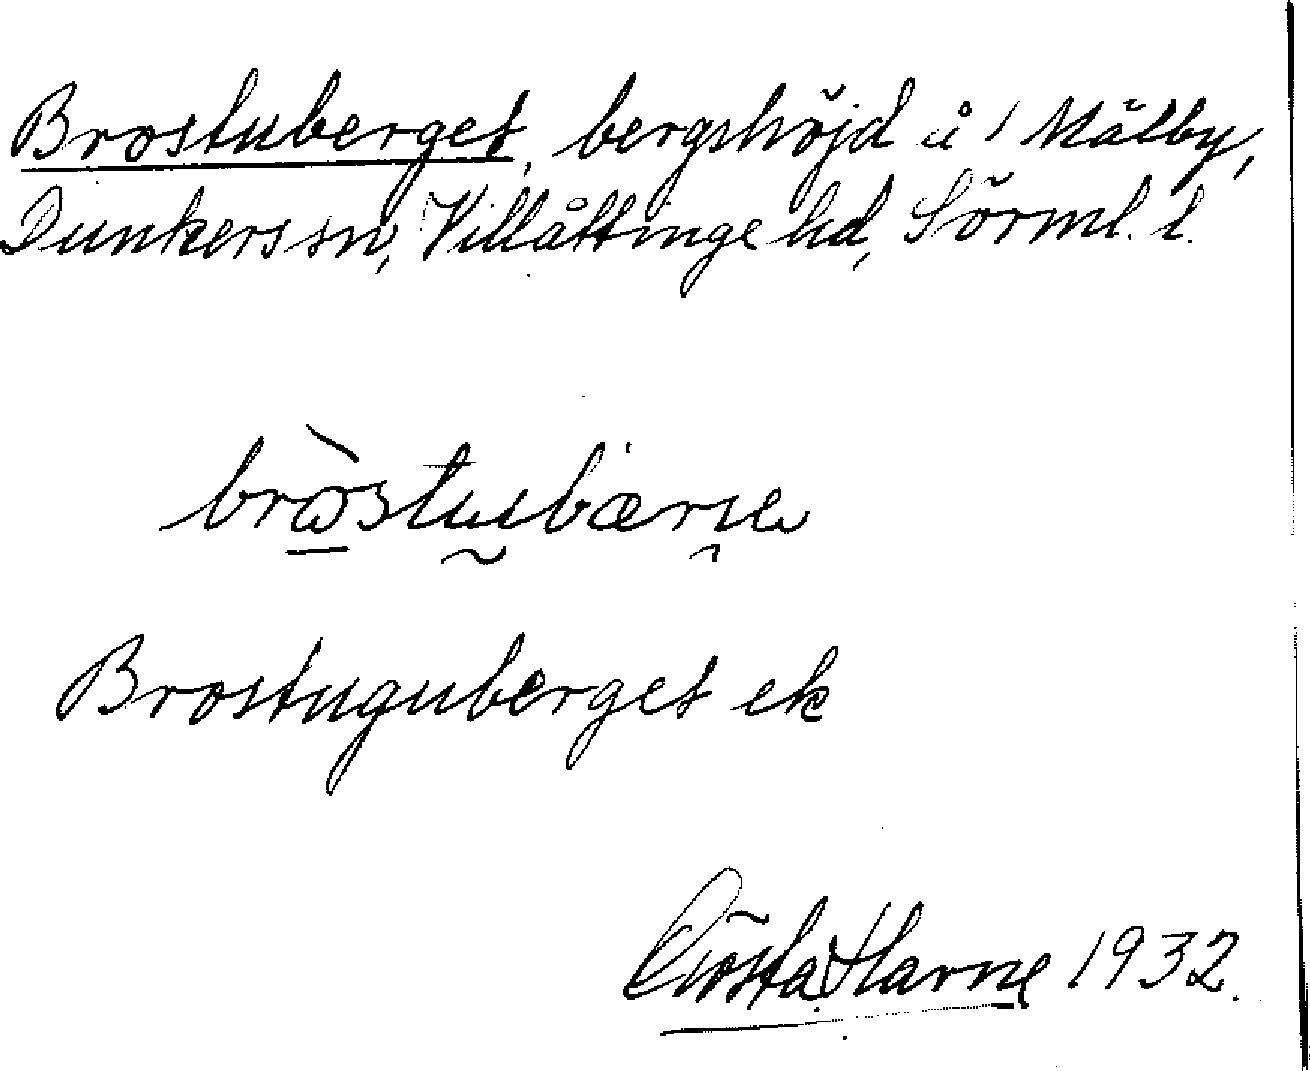 Brostuberget, bergshöjd å 1 Mälby,
Dunkers sn, Villåttinge hd, Sörml. l.
Brostuguberget ek
Gösta Harne 1932.